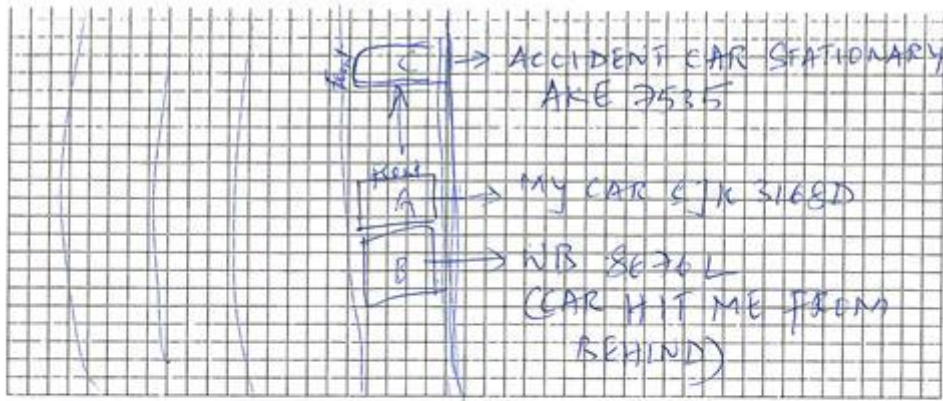 C → ACCIDENT CAR STATIONARY
AKE 7535
A → MY CAR SJK 3168D
B → WB 8676L
(CAR HIT ME FROM
BEHIND)